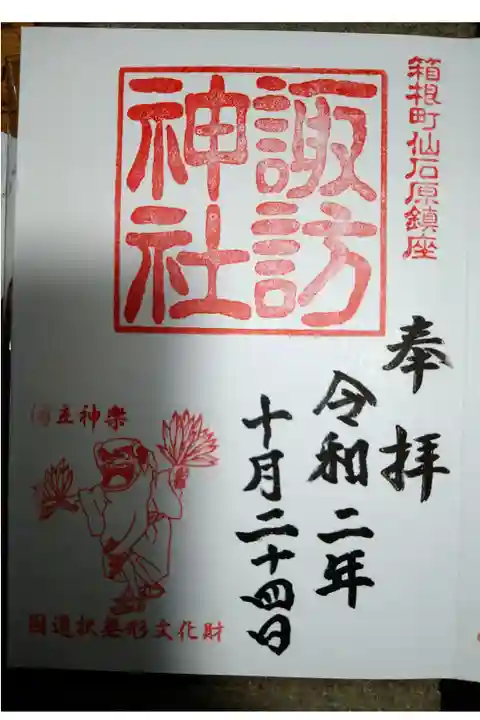 箱根町仙石原鎮座
諏訪
神社
奉拝
令和二年
十月二十四日
立神楽
国選択無形文化財